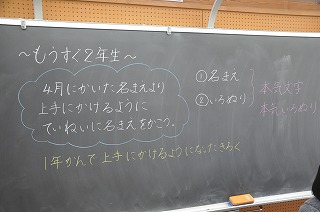 ～もうすぐ2年生～
4月にかいた名まえより
上手にかけるように
ていねいに名まえをかこう。
①名まえ
②いろぬり
本気文字
本気いろぬり
1年かんで上手にかけるようになったきろく